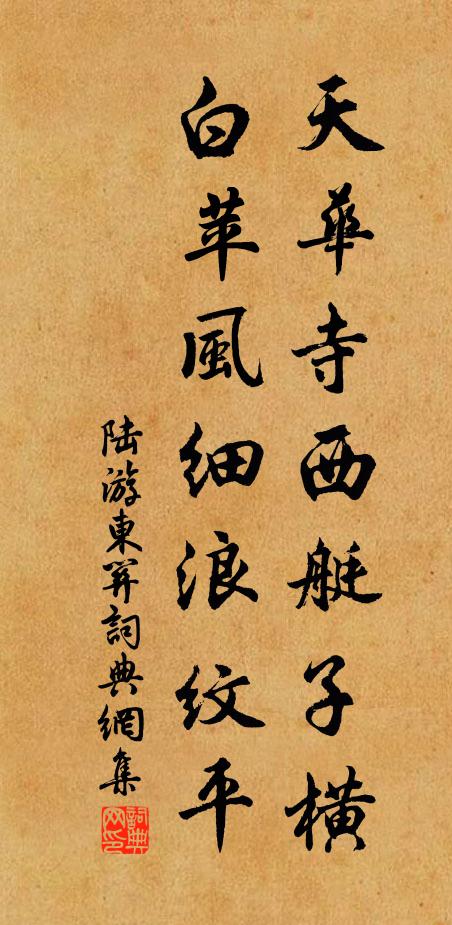 天華寺西艇子橫
白苹風細浪紋平
陆游東笄詞典網集
詞典网印